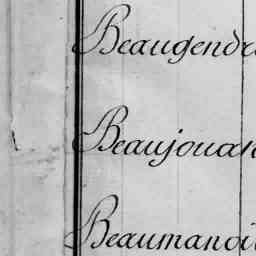 Beaugendr
Beaujouan
Beaumanoi